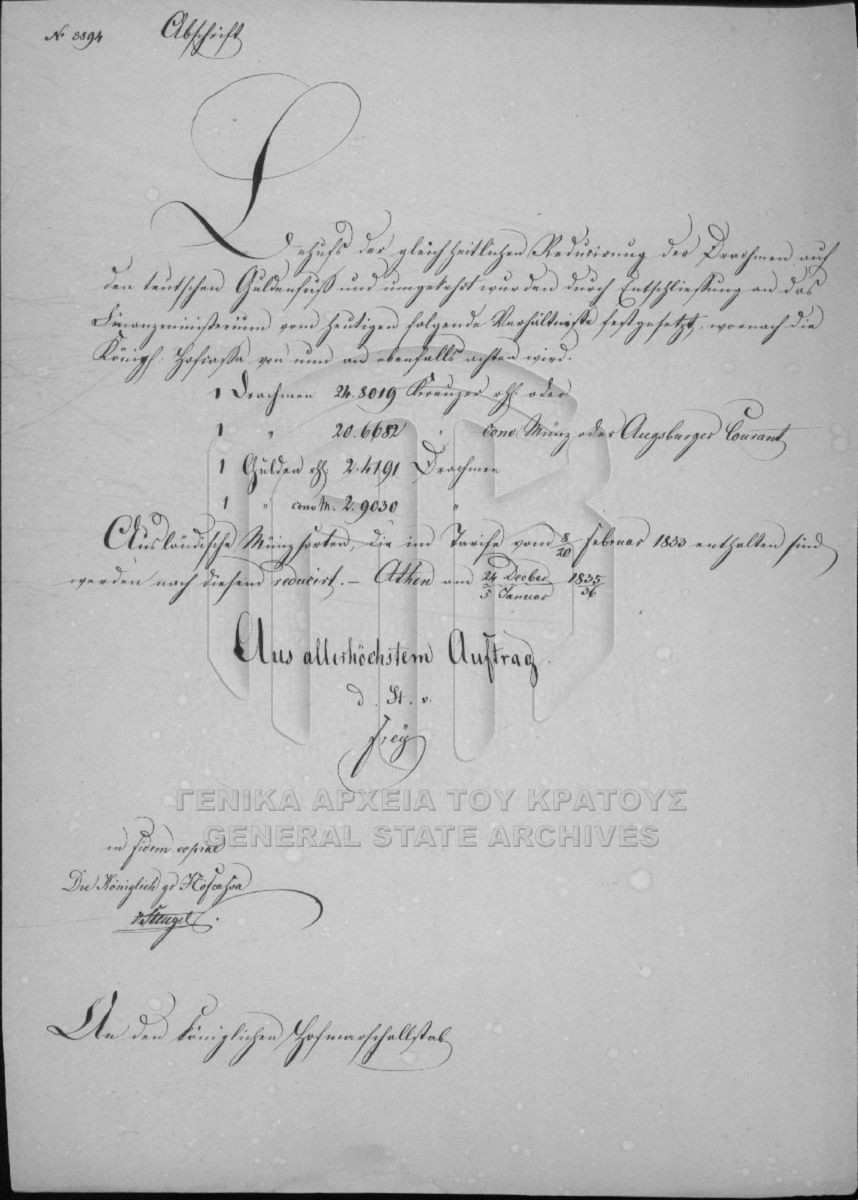 N. 3894 Abschrift
Behufs der gleichheitlichen Reducirung der Drachmen auf
den teutschen Guldenfuß und umgekehrt wurden durch Entschliessung an das
Finanzministerium vom heutigen folgende Verhältnisse festgesetzt, wornach die
Königl: Hofcassa von nun an ebenfalls achten wird.
1 Drachmen 24.8019 Kreuzer rhl. oder
1 " 20.6682 " conv. Münz oder Augsburger Courant
1 Gulden rhl. 2.4191 Drachmen
1 " conv M. 2.9030 "
Ausländische Münzsorten, die im Tarife vom 8/20 Februar 1833 enthalten sind
werden nach diesem reducirt. – Athen am 24 Decber/5 Januar 1835/36
Aus allerhöchstem Auftrag.
d. St. v.
Frey
ΓΕΝΙΚΑ ΑΡΧΕΙΑ ΤΟΥ ΚΡΑΤΟΥΣ
GENERAL STATE ARCHIVES
in fidem copiae
Die Königlich gr Hofcassa
v Stengel
An den königlichen Hofmarschallstab